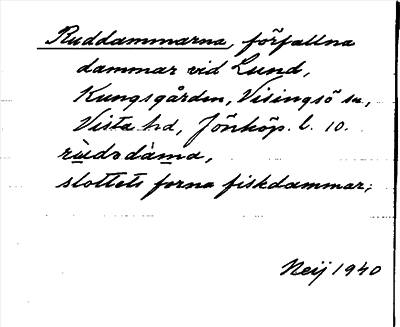 Ruddammarna, förfallna
dammar vid Lund,
Kungsgården, Visingsö sn,
Vista hd, Jönköp. l. 10.
rùdədàmа,
slottets forna fiskdammar;
Neij 1940